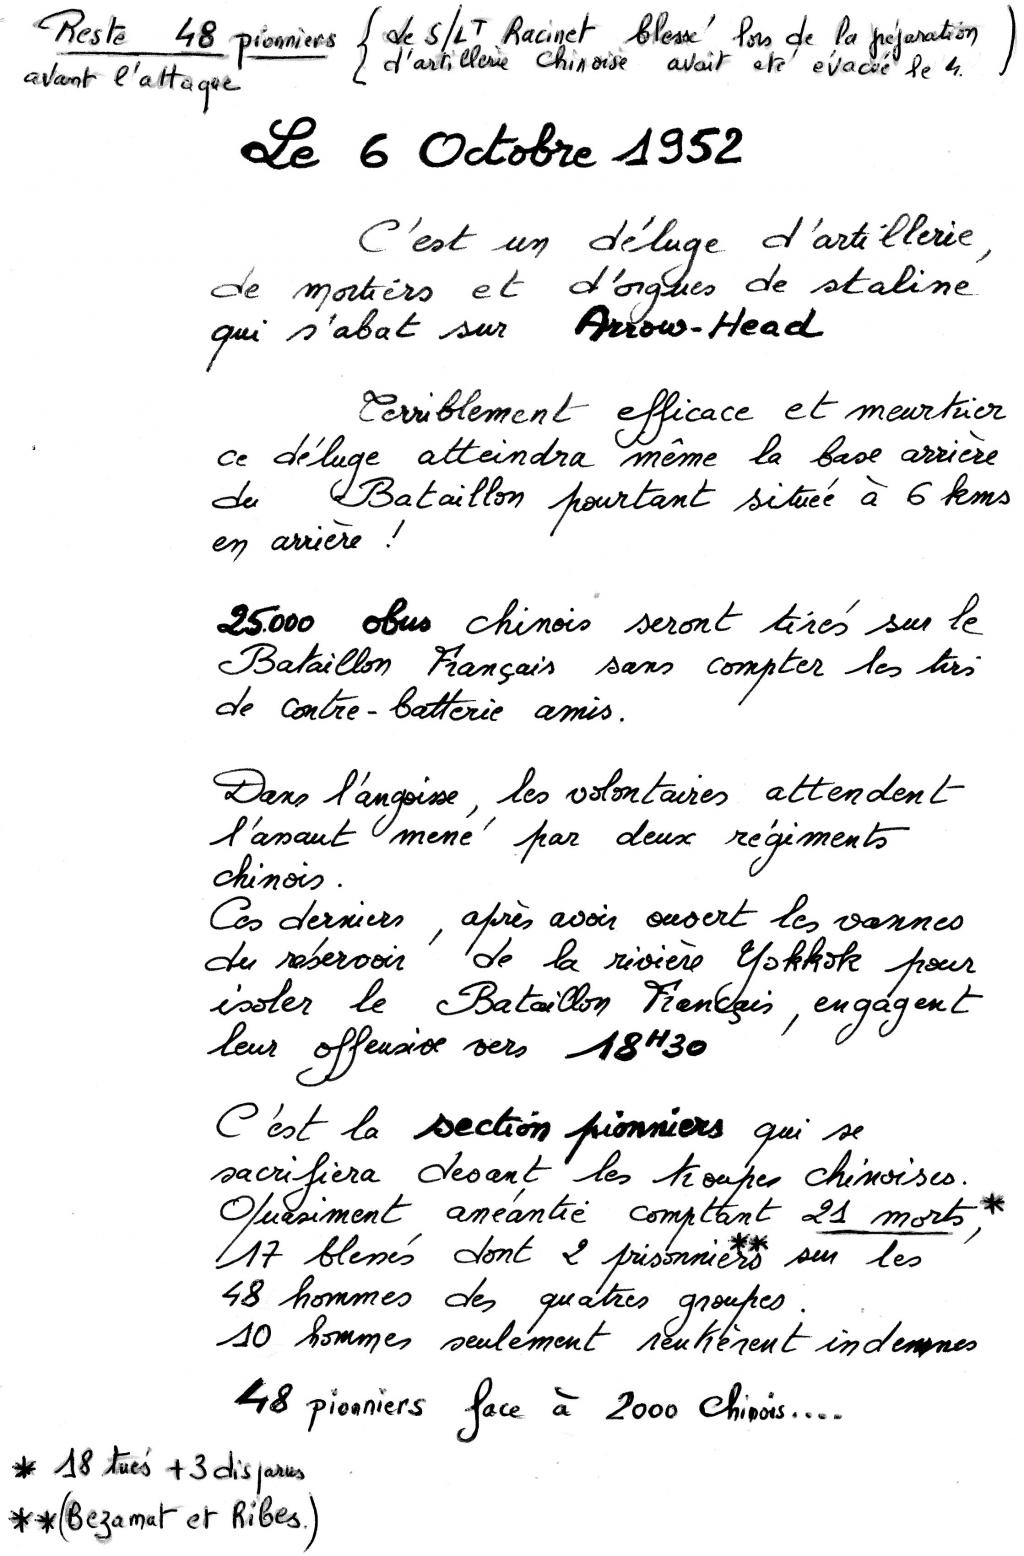 Reste 48 pionniers { Le S/LT Racinet blessé lors de la préparation )
avant l'attaque { d'artillerie Chinoise avait été évacué le 4. )
Le 6 Octobre 1952
C'est un déluge d'artillerie,
de mortiers et d'orgues de staline
qui s'abat sur Arrow-Head
Terriblement efficace et meurtrier
ce déluge atteindra même la base arrière
du Bataillon pourtant située à 6 kms
en arrière !
25.000 obus chinois seront tirés sur le
Bataillon Français sans compter les tirs
de contre-batterie amis.
Dans l'angoisse, les volontaires attendent
l'assaut mené par deux régiments
chinois.
Ces derniers, après avoir ouvert les vannes
du réservoir de la rivière Yokkok pour
isoler le Bataillon Français, engagent
leur offensive vers 18H30
C'est la section pionniers qui se
sacrifiera devant les troupes chinoises.
Quasiment anéantie comptant 21 morts,*
17 blessés dont 2 prisonniers** sur les
48 hommes des quatres groupes.
10 hommes seulement rentrèrent indemnes
48 pionniers face à 2000 Chinois....
* 18 tués + 3 disparus
** (Bezamat et Ribes.)